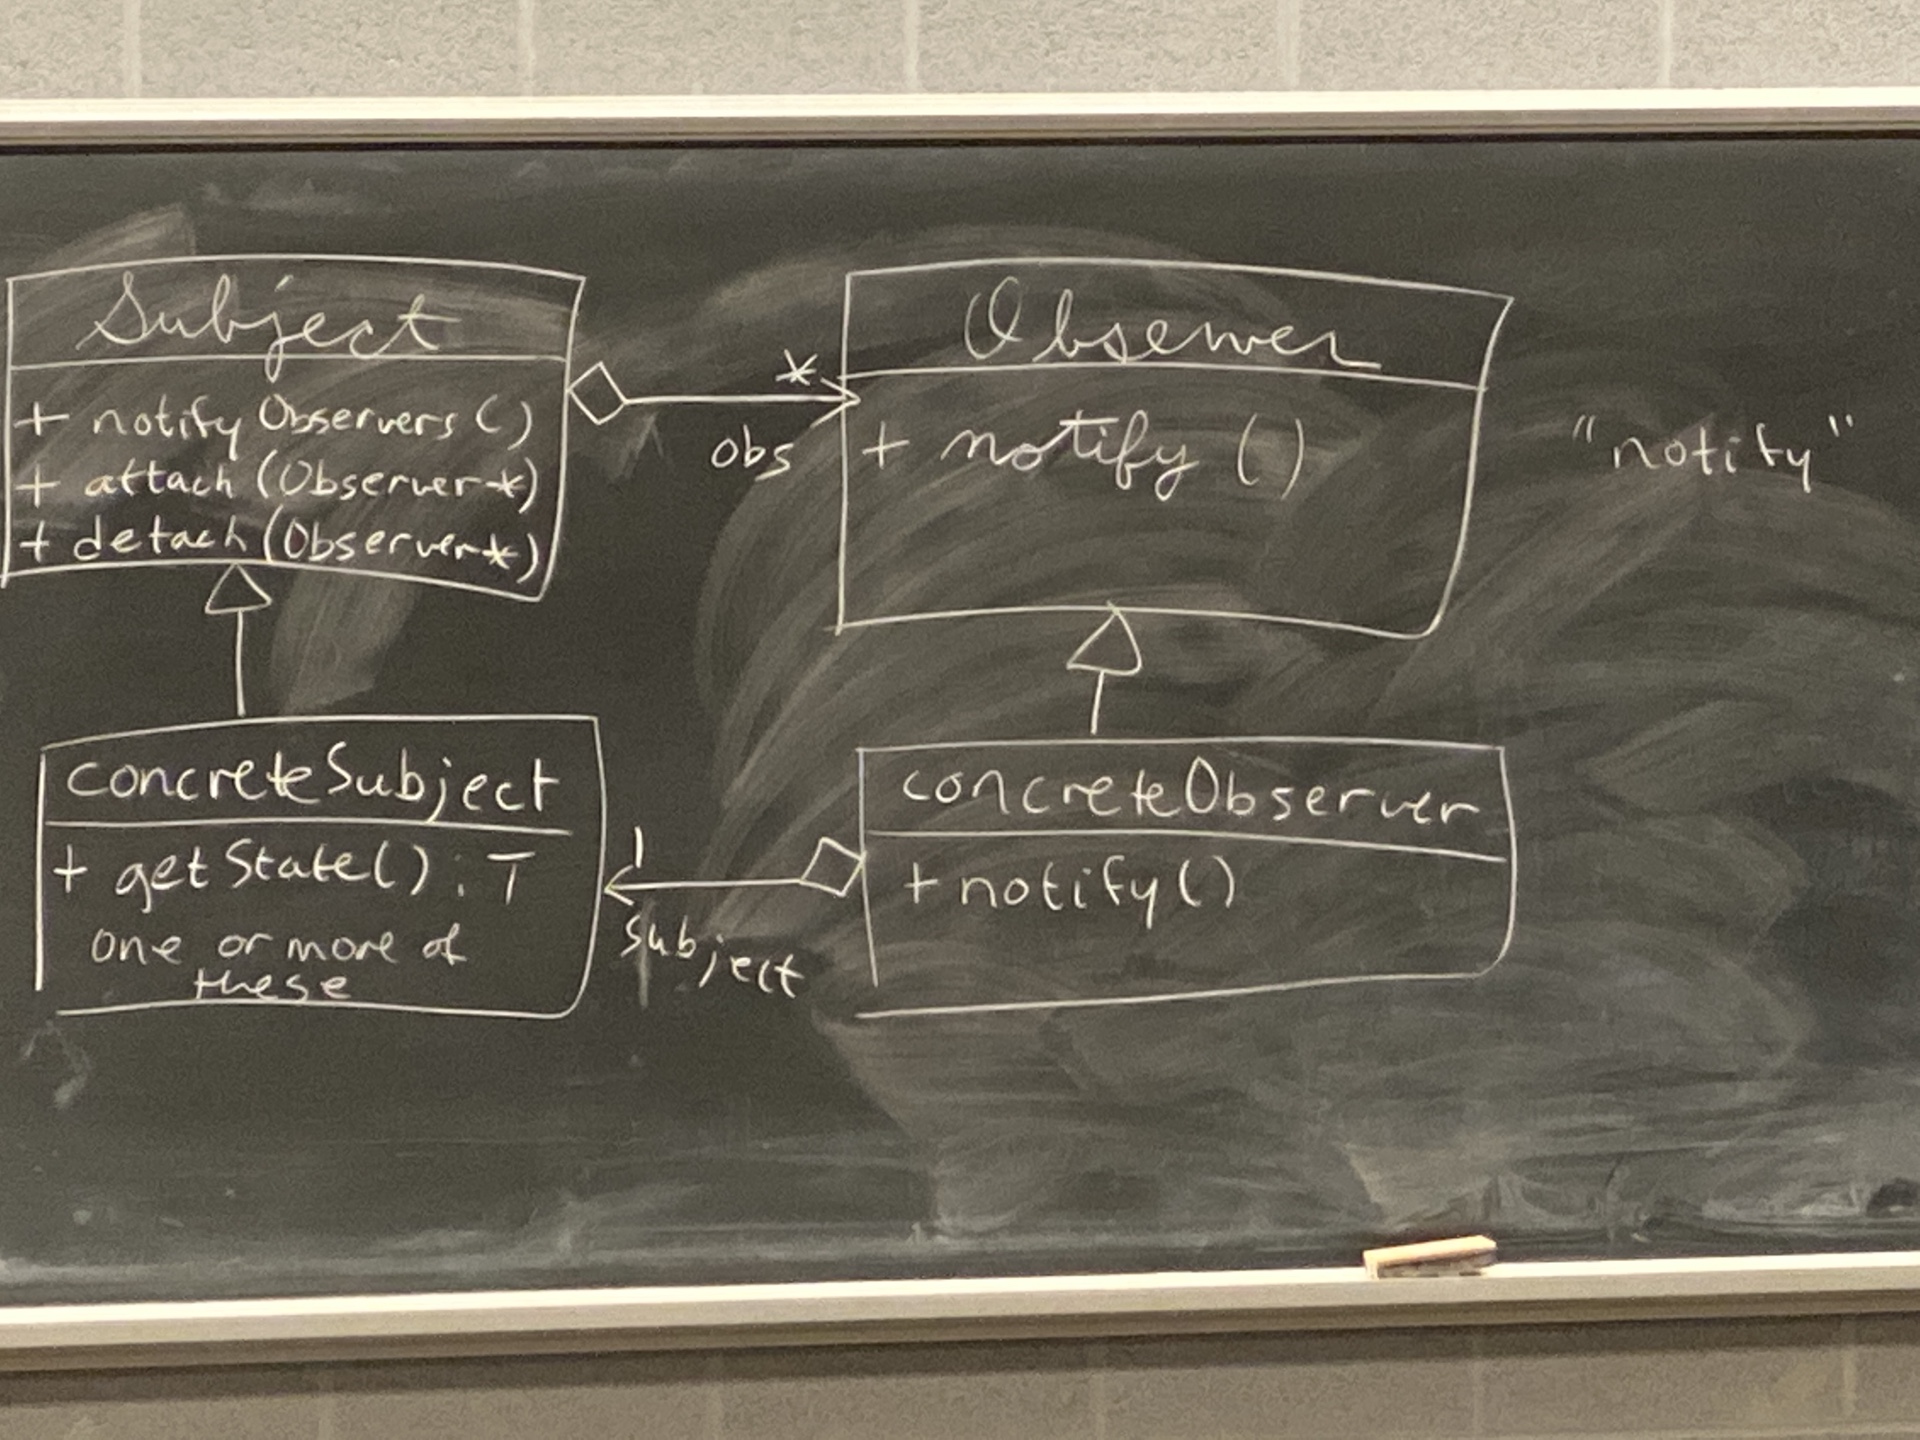 Subject
+ notifyObservers()
+ attach(Observer*)
+ detach(Observer*)
*
obs
Observer
+ notify()
"notify"
concreteSubject
+ getState() : T
one or more of
these
1
subject
concreteObserver
+ notify()